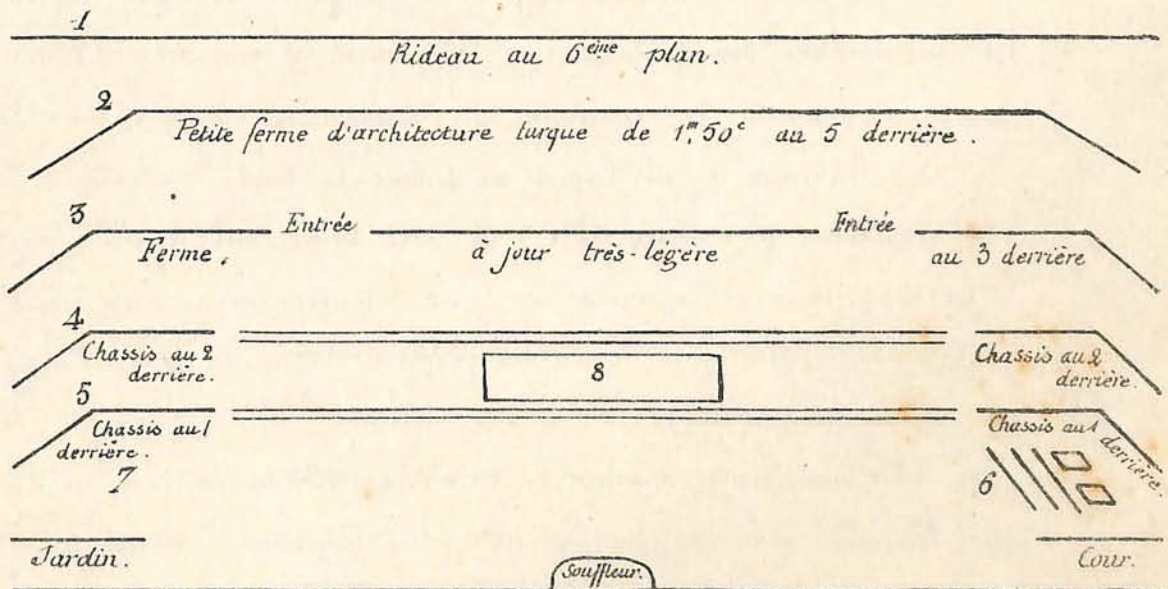 1
Rideau au 6ème plan.
2
Petite ferme d'architecture turque de 1m,50c au 5 derrière.
3 Entrée Entrée
Ferme, à jour très-légère au 3 derrière
4
Chassis au 2
derrière.
8
Chassis au 2
derrière.
5
Chassis au 1
derrière.
Chassis au 1
derrière.
7
6
Jardin.
Souffleur.
Cour.